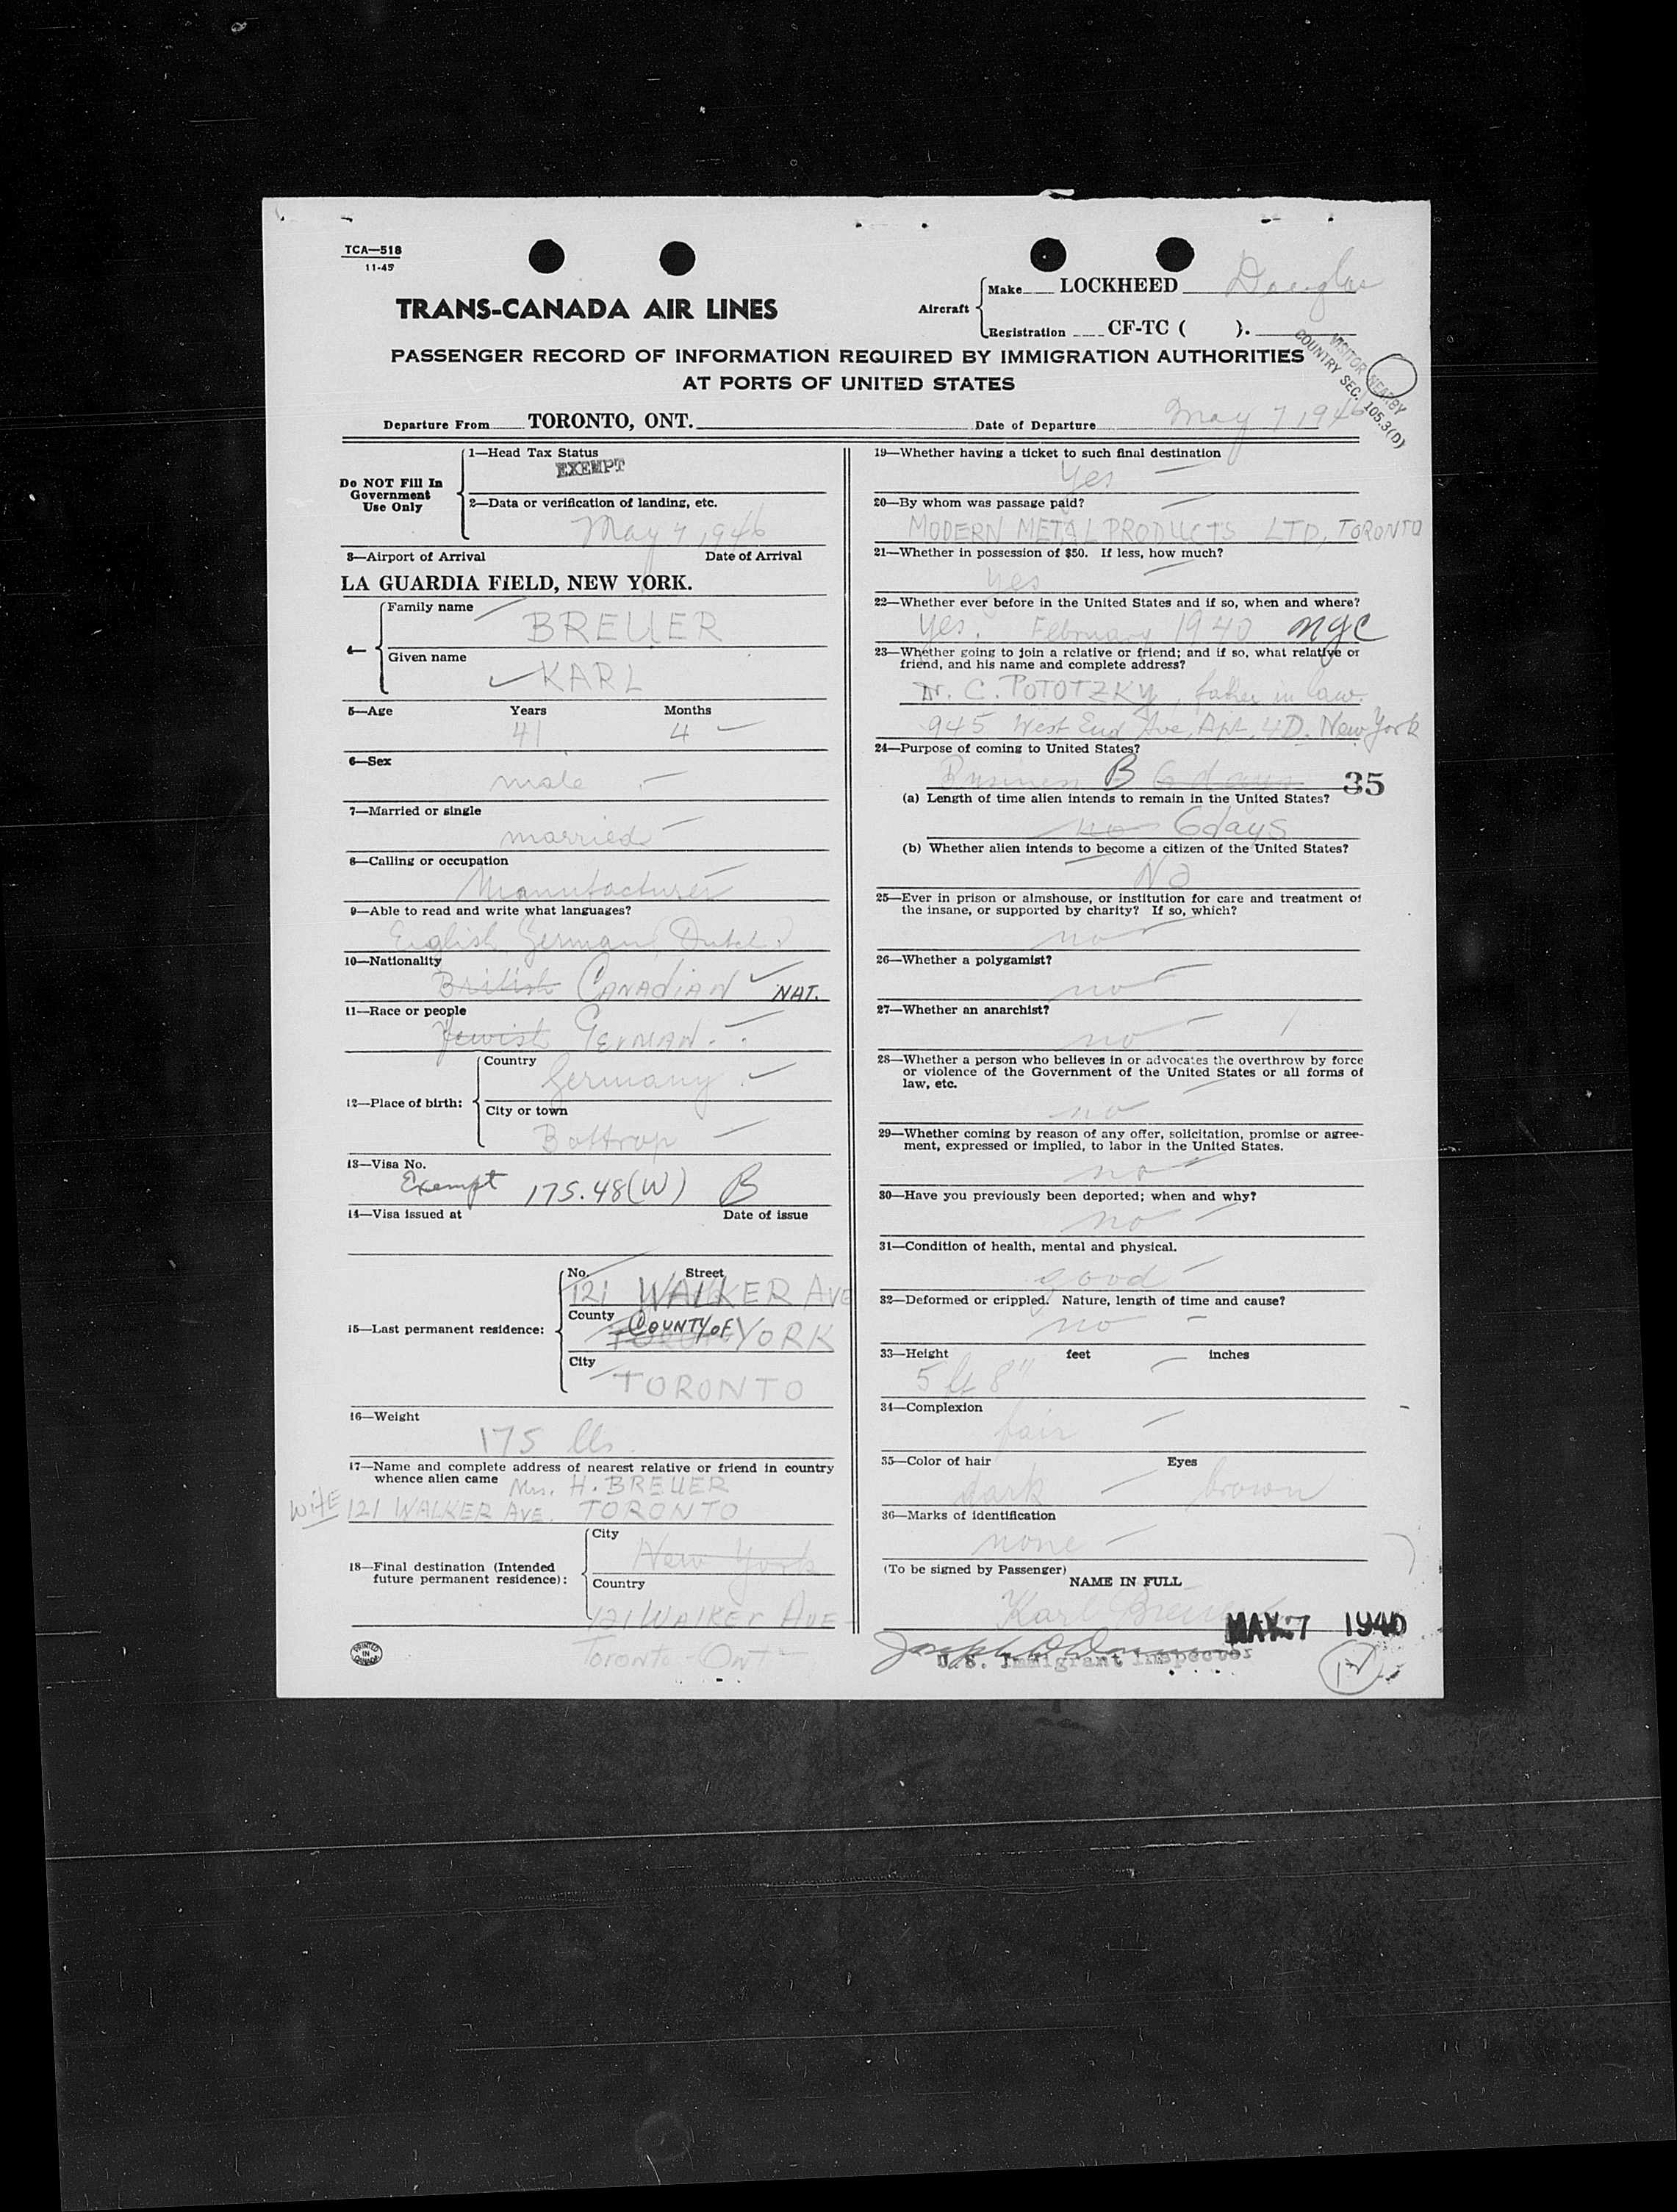 TCA—518
11-45
TRANS-CANADA AIR LINES
Aircraft
Make LOCKHEED Douglas
Registration CF-TC ( ).
PASSENGER RECORD OF INFORMATION REQUIRED BY IMMIGRATION AUTHORITIES
AT PORTS OF UNITED STATES
VISITOR NEARBY
COUNTRY SEC. 105.3(D)
Departure From TORONTO, ONT. Date of Departure May 7, 1946
Do NOT Fill In
Government
Use Only
1—Head Tax Status
EXEMPT
2—Data or verification of landing, etc.
May 7, 1946
3—Airport of Arrival Date of Arrival
LA GUARDIA FIELD, NEW YORK.
4—
Family name
BREUER
Given name
KARL
5—Age Years Months
41 4
6—Sex
male
7—Married or single
married
8—Calling or occupation
Manufacturer
9—Able to read and write what languages?
English, German, Dutch
10—Nationality
British CANADIAN NAT.
11—Race or people
Jewish GERMAN.
12—Place of birth:
Country
Germany
City or town
Bottrop
13—Visa No.
Exempt 175.48(W) B
14—Visa issued at Date of issue
15—Last permanent residence:
No. Street
121 WALKER AVE
County
COUNTY OF YORK
City
TORONTO
16—Weight
175 lbs
17—Name and complete address of nearest relative or friend in country
whence alien came Mrs. H. BREUER
WifE 121 WALKER AVE. TORONTO
18—Final destination (Intended
future permanent residence):
City
New York
Country
121 WALKER AVE
Toronto - Ont
PRINTED IN CANADA
19—Whether having a ticket to such final destination
yes
20—By whom was passage paid?
MODERN METAL PRODUCTS LTD, TORONTO
21—Whether in possession of $50. If less, how much?
yes
22—Whether ever before in the United States and if so, when and where?
yes. February 1940 nyc
23—Whether going to join a relative or friend; and if so, what relative or
friend, and his name and complete address?
Dr. C. POTOTZKY, father in law.
945 West End Ave, Apt. 4D. New York
24—Purpose of coming to United States?
Business B 6 days 35
(a) Length of time alien intends to remain in the United States?
no 6days
(b) Whether alien intends to become a citizen of the United States?
No
25—Ever in prison or almshouse, or institution for care and treatment of
the insane, or supported by charity? If so, which?
no
26—Whether a polygamist?
no
27—Whether an anarchist?
no
28—Whether a person who believes in or advocates the overthrow by force
or violence of the Government of the United States or all forms of
law, etc.
no
29—Whether coming by reason of any offer, solicitation, promise or agree-
ment, expressed or implied, to labor in the United States.
no
30—Have you previously been deported; when and why?
no
31—Condition of health, mental and physical.
good
32—Deformed or crippled. Nature, length of time and cause?
no
33—Height feet inches
5 ft 8"
34—Complexion
fair
35—Color of hair Eyes
dark brown
36—Marks of identification
none
(To be signed by Passenger)
NAME IN FULL
Karl Breuer
MAY 7 1946
U.S. Immigrant Inspector